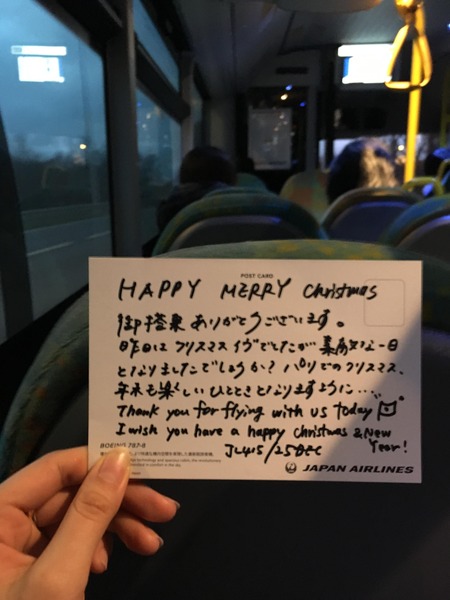 POST CARD
HAPPY MERRY Christmas
御搭乗ありがとうございます。
昨日はクリスマスイヴでしたが素敵な一日
となりましたでしょうか？パリでのクリスマス、
年末も楽しいひとときとなりますように…。
Thank you for flying with us today
I wish you have a happy christmas & New
Year!
JL415/25DEC
BOEING 787-8
JAPAN AIRLINES